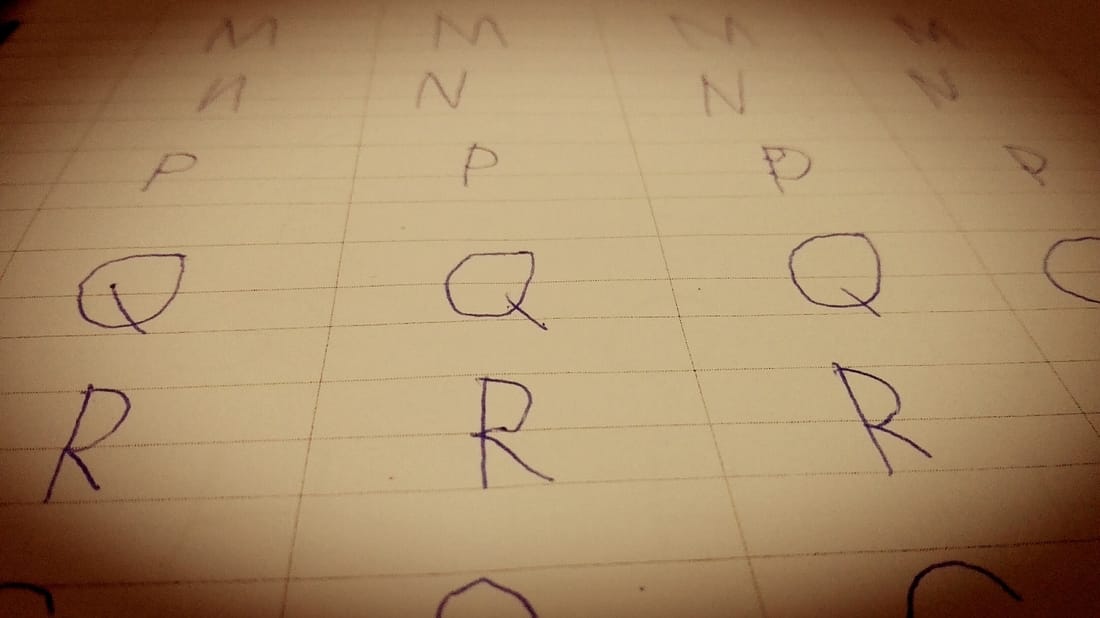 M M M M
N N N N
P P P P
Q Q Q
R R R